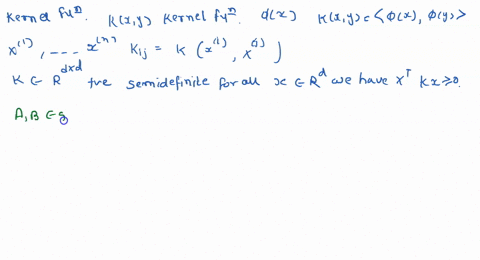 Kernel fyⁿ. K(x,y) kernel fyⁿ. ϕ(x) K(x,y) = <ϕ(x), ϕ(y)>
x⁽¹⁾, ---- x⁽ⁿ⁾ Kij = K (x⁽ⁱ⁾, x⁽ʲ⁾)
K ∈ R^dxd +ve semidefinite for all x ∈ R^d we have x^T Kx ≥ 0.
A, B ∈